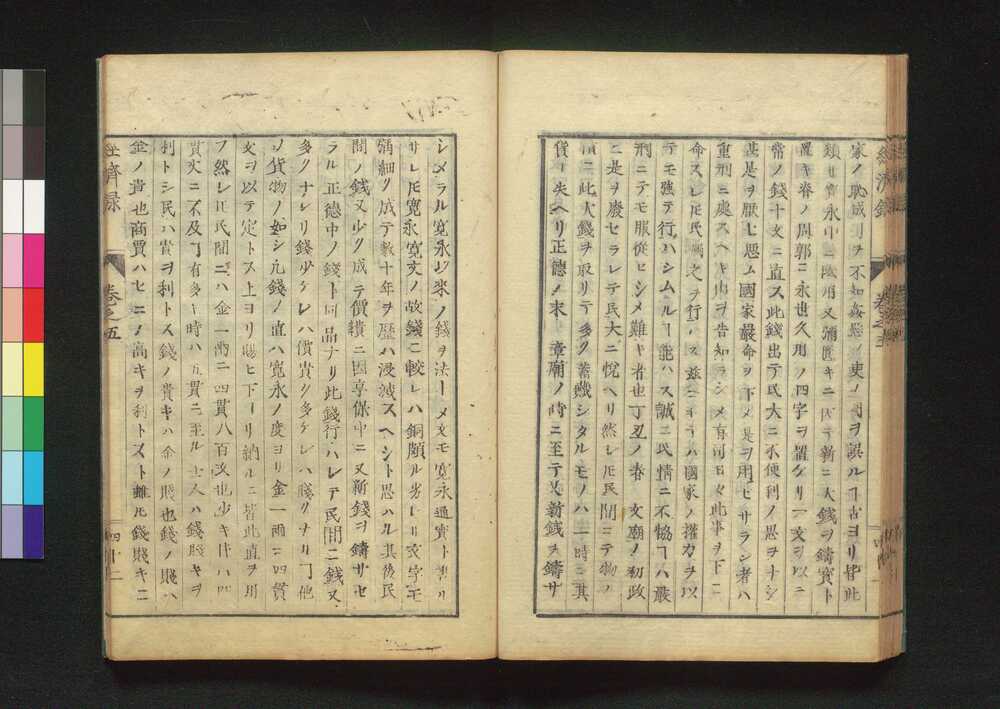 家ノ恥成ヿヲ不知姦邪ノ吏ノ國ヲ誤ルヿ古ヨリ皆此
類也寶永中ニ國用又彌匱キニ因テ新ニ大錢ヲ鑄寶ト
置キ脊ノ周郭ニ永世久用ノ四字ヲ置ケリ一文ヲ以ニ
常ノ錢十文ニ直ス此錢出テ民大ニ不便利ノ思ヲナシ
甚是ヲ厭ヒ惡ム國家嚴命ヲ下メ是ヲ用ヒサラン者ハ
重刑ニ處スヘキ由ヲ告知ラシメ有司日々此事ヲ下ニ
命スレ𪜈民獨之ヲ行ハス茲ニ至テハ國家ノ權力ヲ以
テモ強テ行ハシムルヿ能ハス誠ニ民情ニ不協ヿハ嚴
刑ニテモ服從セシメ難キ者也丁丑ノ春 文廟ノ初政
ニ是ヲ廢セラレテ民大ニ悅ヘリ然レ𪜈民間ニテ物ノ
價ニ此大錢ヲ取リテ多ク蓄藏シタルモノハ一時ニ其
貨ヲ失ヘリ正德ノ末 章廟ノ時ニ至テ又新錢ヲ鑄サ
シメラル寬永以來ノ錢ヲ法トメ文モ寬永通寶ト書リ
サレ𪜈寬永寬文ノ故錢ニ較レハ銅頗ル劣レリ文字モ
稍細ク成テ數十年ヲ歷ハ漫滅スヘシト思ハル其後民
間ノ錢又少ク成テ價積ニ因享保中ニ又新錢ヲ鑄サセ
ラル正德中ノ錢ト同品ナリ此錢行ハレテ民間ニ錢又
多クナレリ錢少ケレハ價貴ク多ケレハ賤クナルヿ他
ノ貨物ノ如シ凡錢ノ直ハ寬永ノ度ヨリ金一兩ニ四貫
文ヲ以テ定トス上ヨリ賜ヒ下ヨリ納ルニ皆此直ヲ用
フ然レ𪜈民間ニハ金一兩ニ四貫八百文也少キ時ハ四
貫文ニ不及ヿ有多キ時ハ五貫ニ至ル士人ハ錢賤キヲ
利トシ民ハ貴ヲ利トス錢ノ貴キハ金ノ賤也錢ノ賤ハ
金ノ貴也商賈ハ七ニノ高キヲ利トスト雖𪜈錢賤キニ
經濟錄
卷之五
四十二